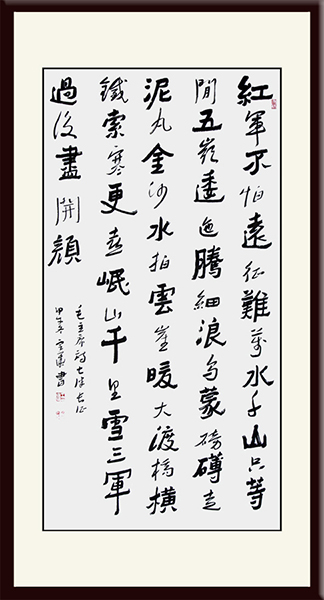 紅軍不怕遠征難萬水千山只等
閒五嶺逶迤騰細浪烏蒙磅礴走
泥丸金沙水拍雲崖暖大渡橋橫
鐵索寒更喜岷山千里雪三軍
過後盡開顏
毛主席詩七律長征
甲午 書